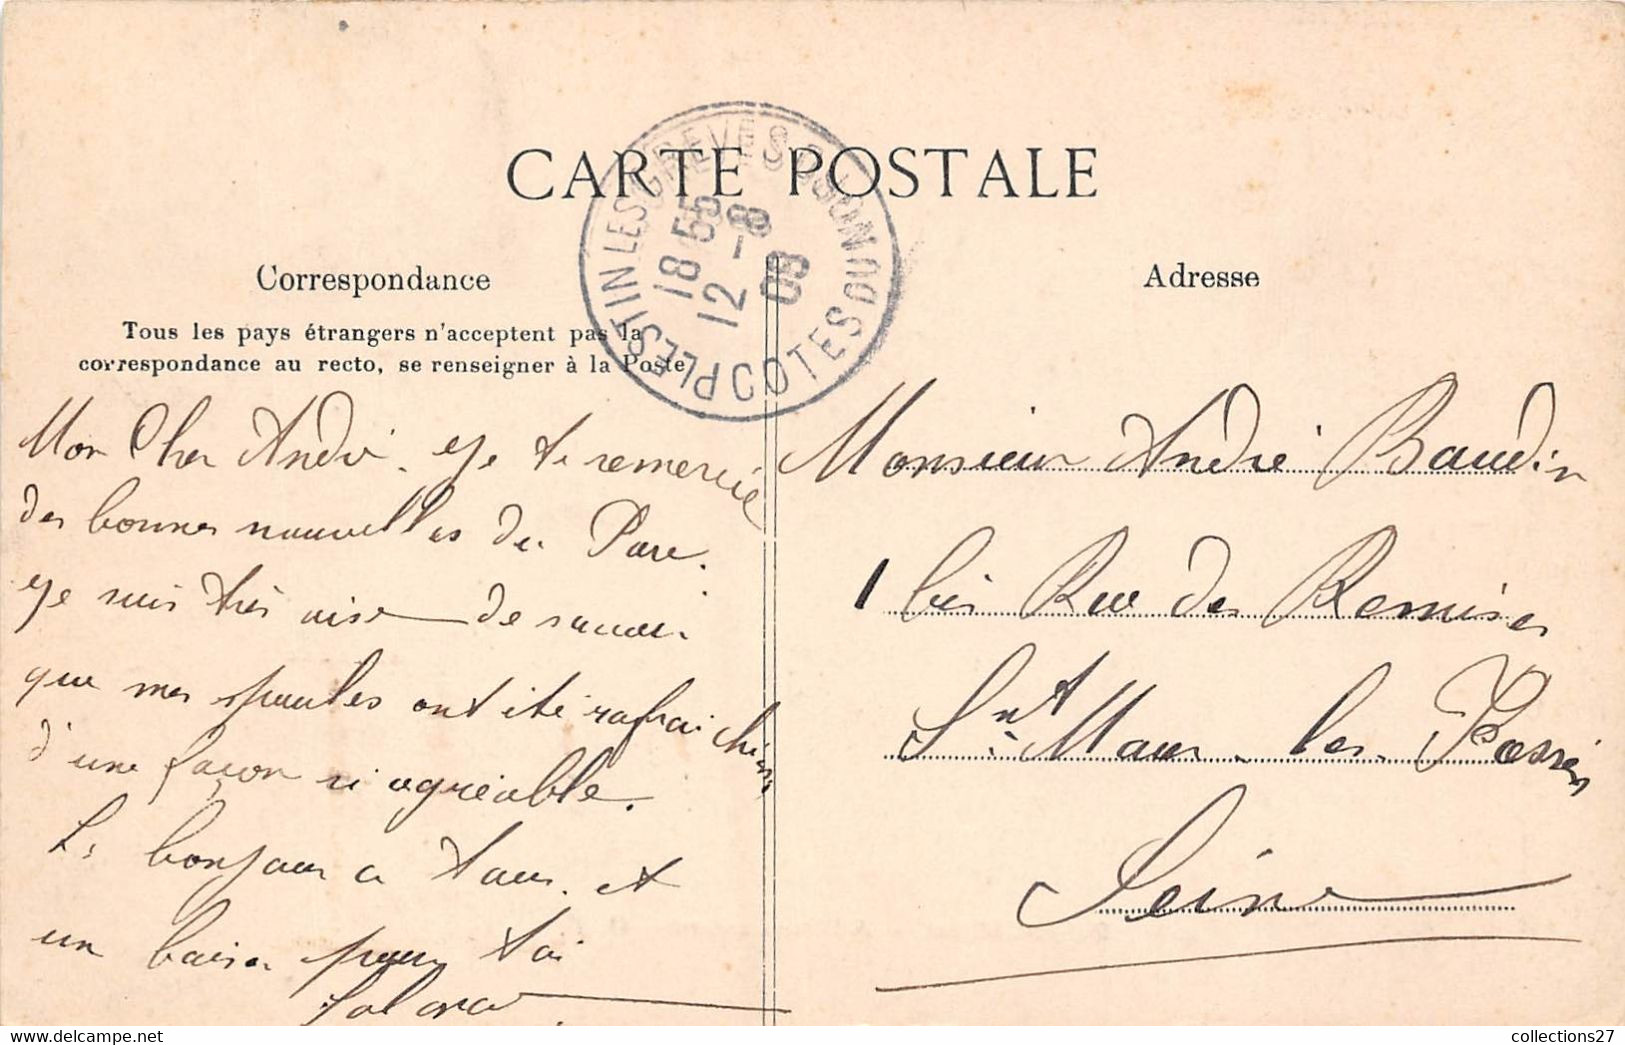 CARTE POSTALE
PLESTIN LES GREVES COTES DU NORD
18 55
12 - 8
08
Correspondance
Adresse
Tous les pays étrangers n'acceptent pas la
correspondance au recto, se renseigner à la Poste
Mon Cher André. Je te remercie
des bonnes nouvelles du Parc.
Je suis très aise de savoir
que mes poules ont été rafraichies
d'une façon si agréable.
Le bonjour a tous. et
un baiser pour toi
Monsieur André Baudin
1 bis Rue des Remises
Snt Maur-les-Fossés
Seine
collections27